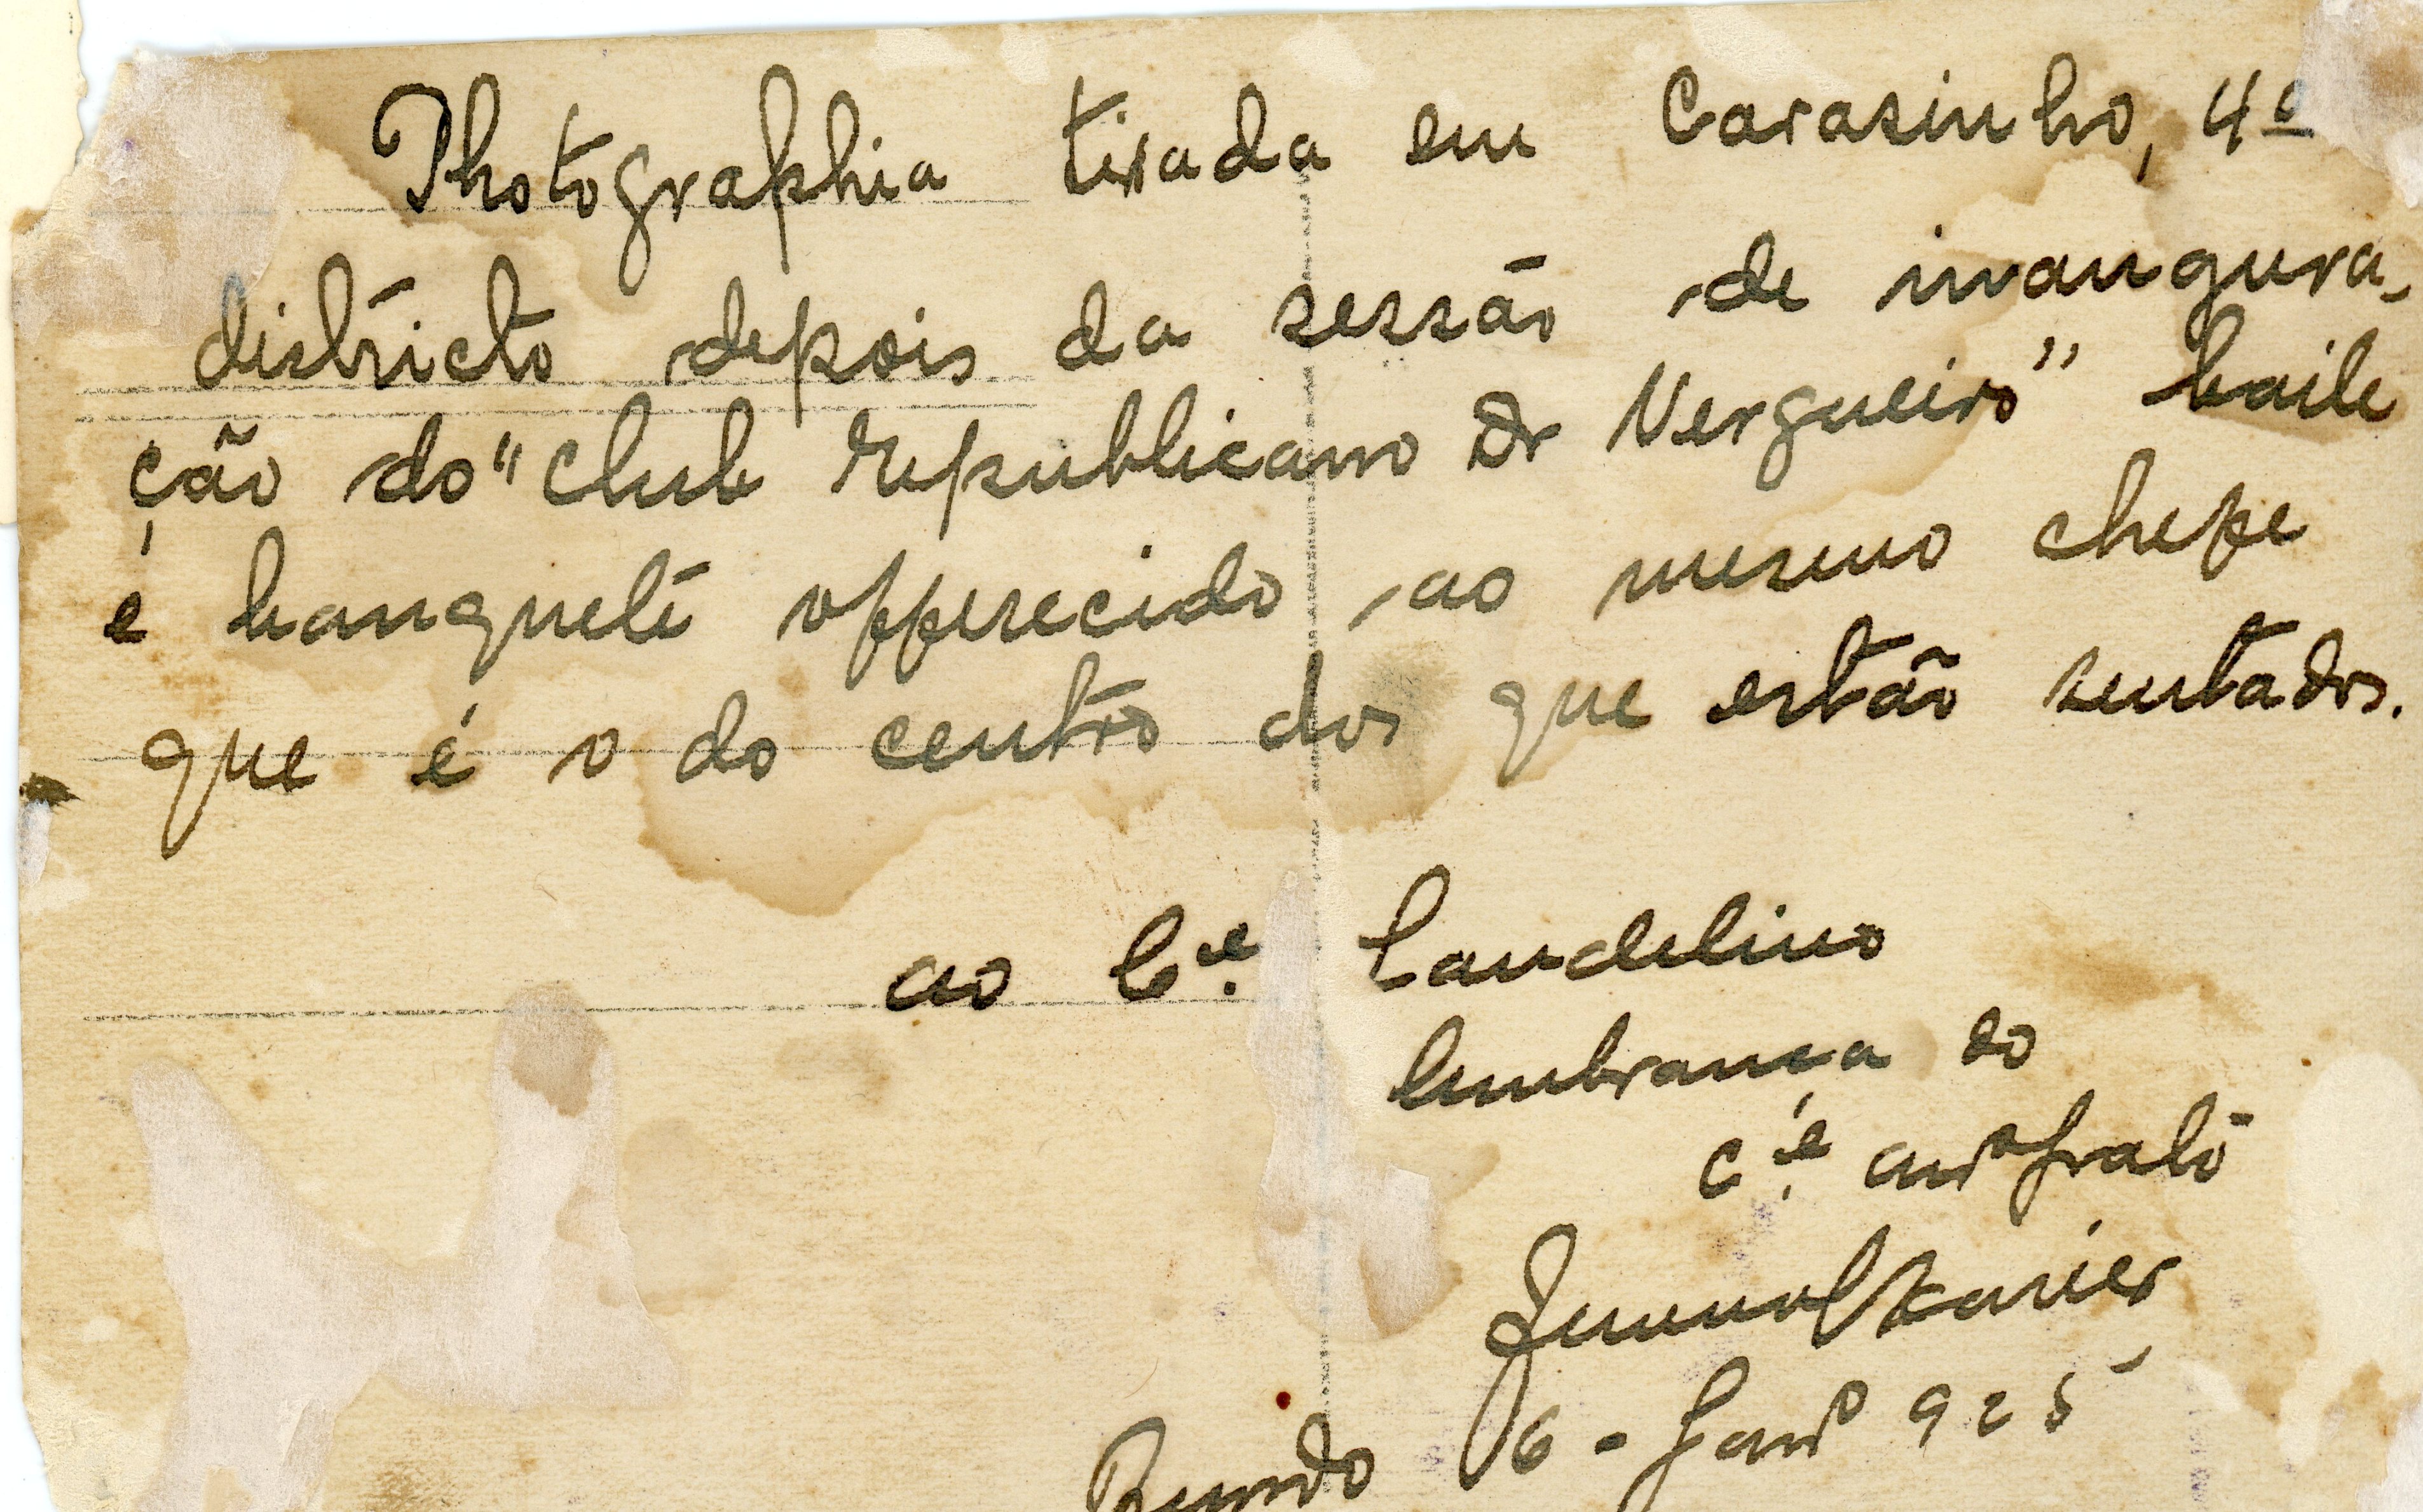 Photographia tirada em Carasinho, 4º
districto depois da sessão de inaugura-
ção do "Club republicano Dr Vergueiro" baile
e banquete offerecido ao mesmo chefe
que é o do centro dos que estão sentados.
ao C.e Candelino
lembrança do
c.e amº grato
Juvenal Xavier
Fundo 6 - Janº 925